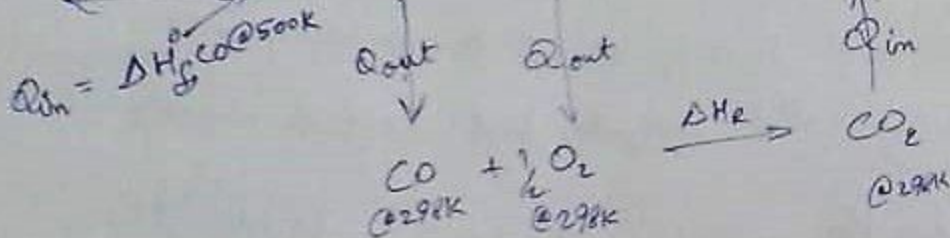 Qin = ΔH°f CO@500K
Qout
Qout
Qin
CO + ½ O2
ΔHR
CO2
@298K
@298K
@298K